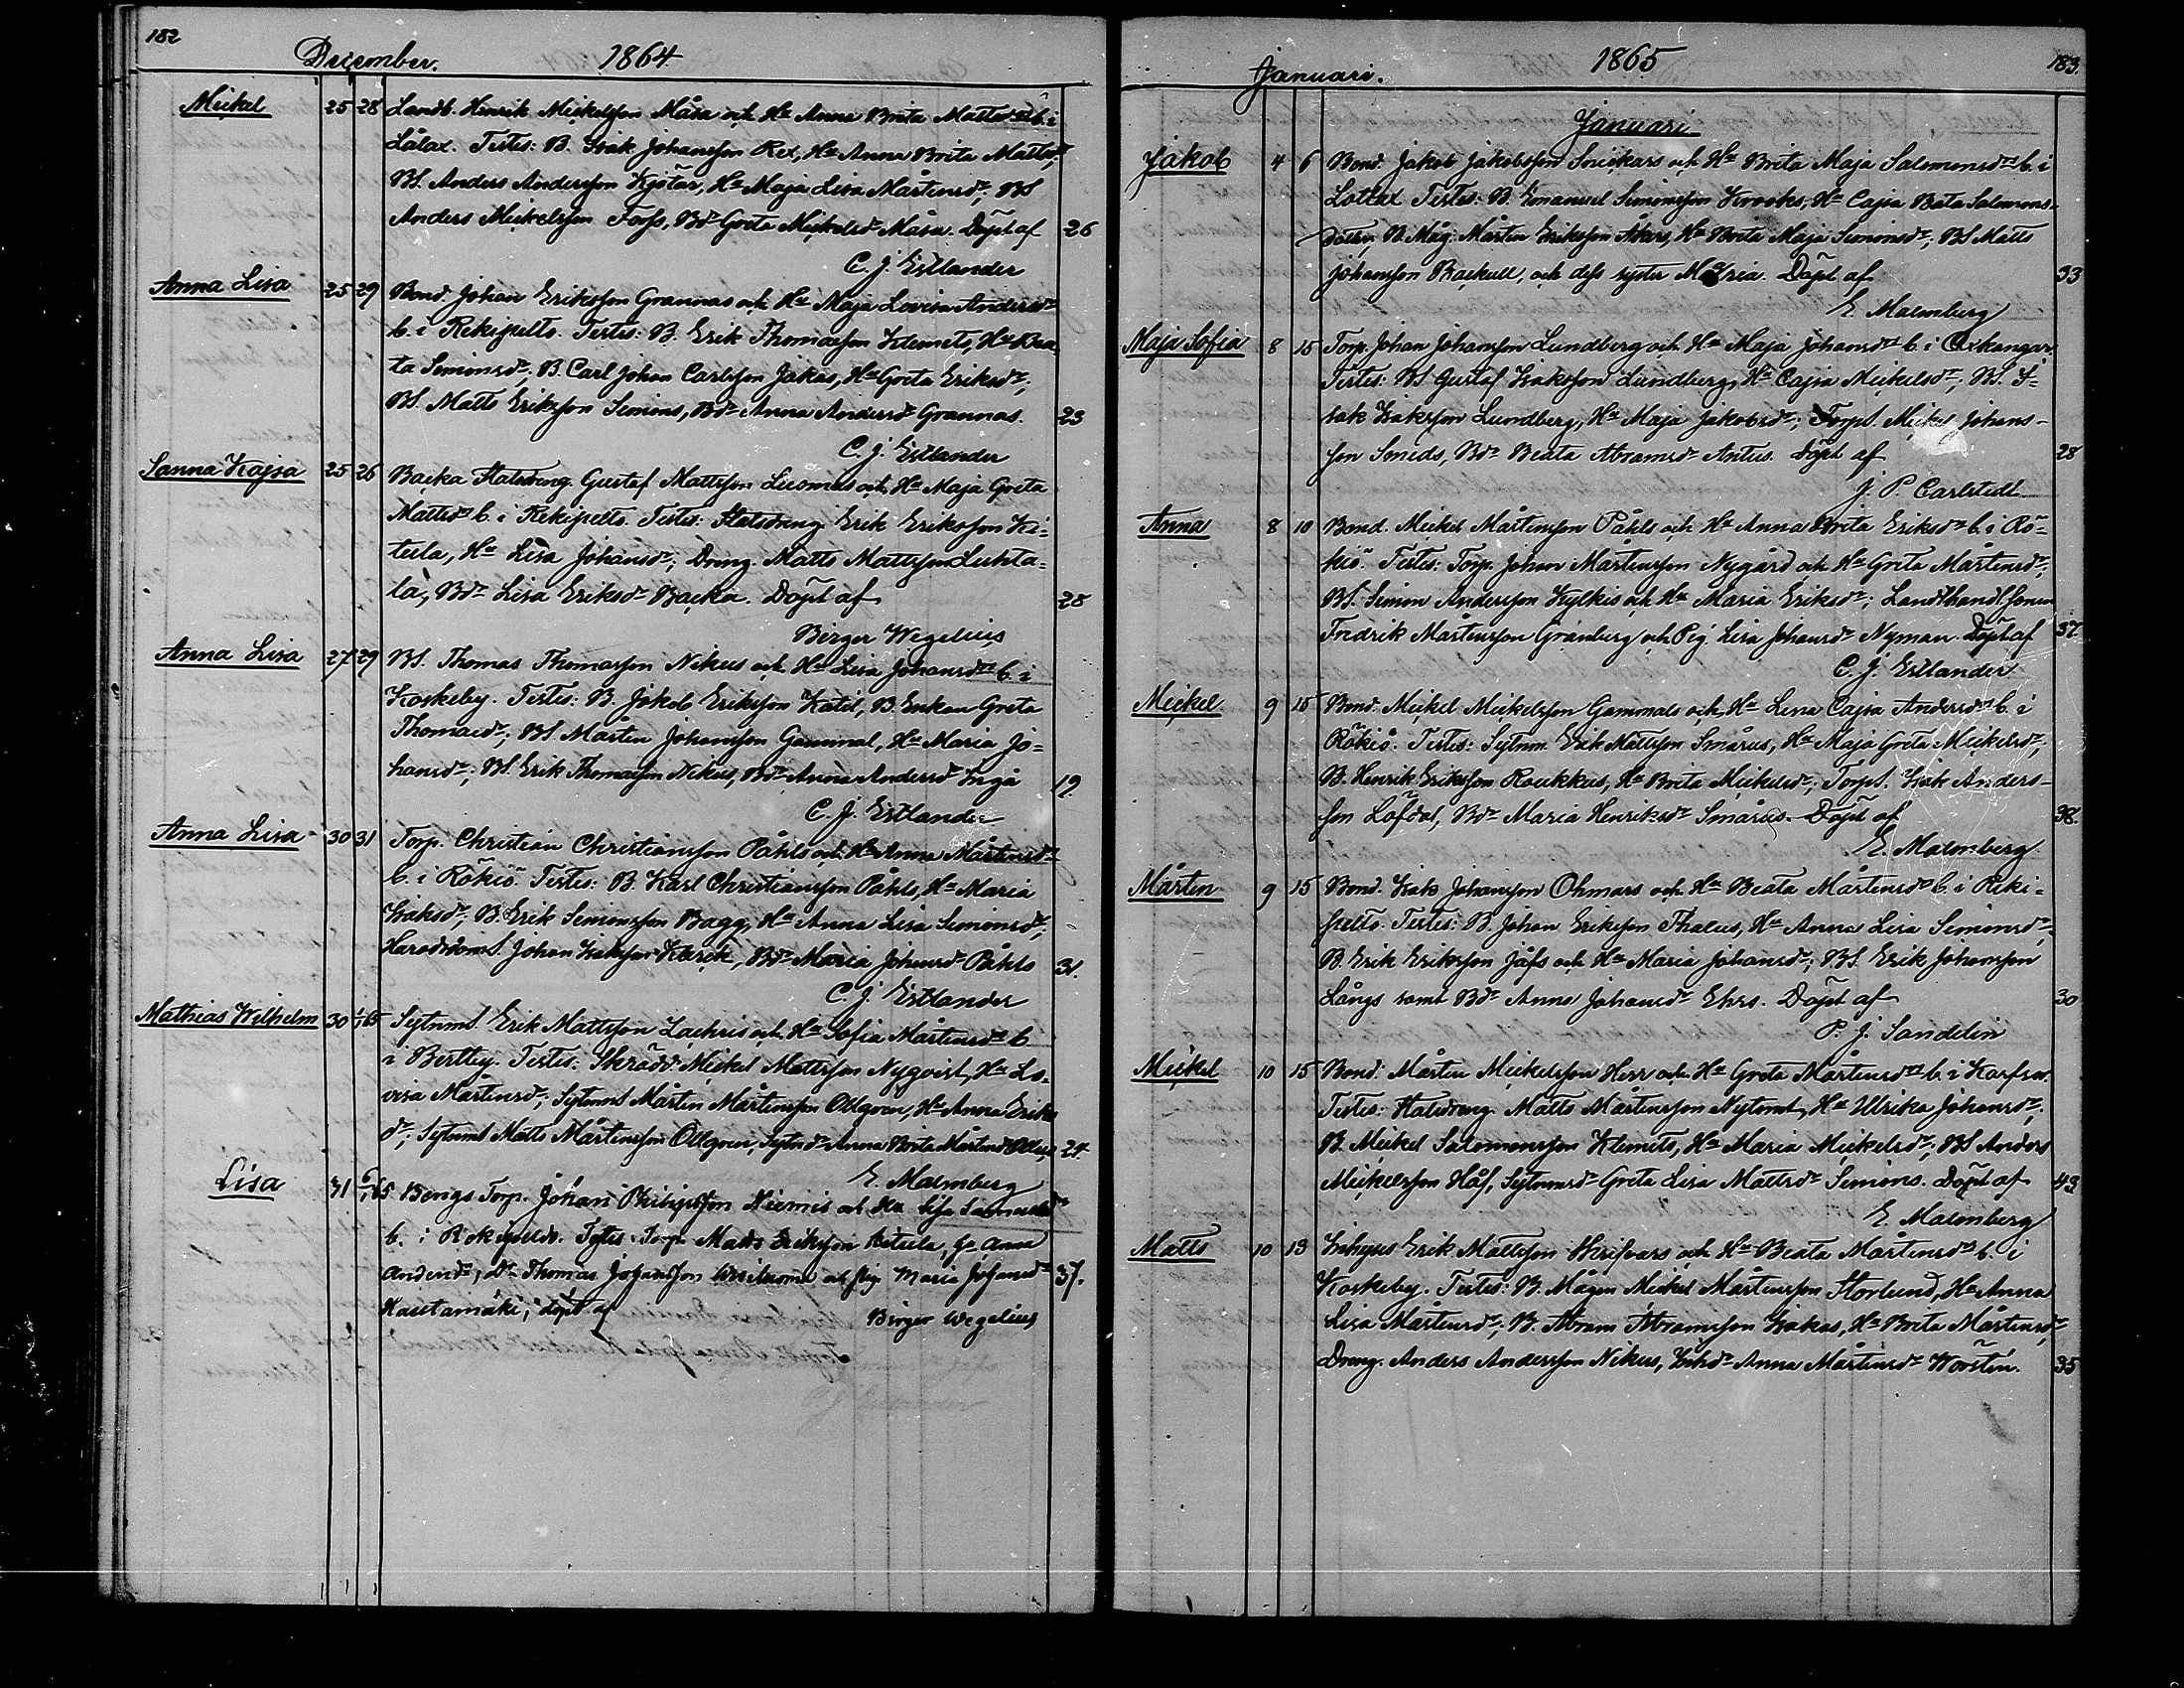 182
December. 1864
Mickel 25 28 Landb. Henrik Mickelsson Måsa och Hu Anna Brita Mattsdr b. i
Lålax. Testes: B. Isak Johansson Rex, Hu Anna Brita Mattsdr,
BS. Anders Andersson Kjötar, Hu Maja Lisa Mårtensdr; BS
Anders Mickelsson Forss, Bdr Greta Mickelsdr Måsa. Döpt af 26
C. J. Estlander
Anna Lisa 25 29 Bond. Johan Eriksson Grannas och Hu Maja Lovisa Andersdr
b. i Rekipelto. Testes: B. Erik Thomasson Klemets, Hu Bea-
ta Simonsdr; B. Carl Johan Carlsson Jakas, Hu Greta Eriksdr;
BS. Matts Eriksson Simons, Bdr Anna Andersdr Grannas. 23
C. J. Estlander
Sanna Kajsa 25 26 Backa Statsdreng Gustaf Mattsson Luomas och Hu Maja Greta
Mattsdr b. i Rekipelto. Testes: Statsdreng Erik Eriksson Ki-
tula, Hu Lisa Johansdr; Dreng. Matts Mattsson Luhta-
la, Bdr Lisa Eriksdr Backa. Döpt af 28
Birger Wegelius
Anna Lisa 27 29 BS. Thomas Thomasson Nikus och Hu Lisa Johansdr b. i
Koskeby. Testes: B. Jakob Eriksson Katil, B. Enkan Greta
Thomasdr; BS Mårten Johansson Gammal, Hu Maria Jo-
hansdr; BS. Erik Thomasson Nikus, Bdr Anna Andersdr Ingå 19.
C. J. Estlander
Anna Lisa 30 31 Torp. Christian Christiansson Påhls och Hu Anna Mårtensdr
b. i Rökiö. Testes: B. Karl Christiansson Påhls, Hu Maria
Isaksdr; B. Erik Simonsson Bagg, Hu Anna Lisa Simonsdr;
Johan Isaksson Bdr Maria Johansdr Påhls 31.
C. J. Estlander
Mathias Wilhelm 30 1/1 65 Sytnms. Erik Mattsson Lachris och Hu Sofia Mårtensdr b
i Bertby. Testes: Skräddr Mickel Mattsson Nyqvist, Hu Lo-
visa Mårtensdr; Sytnms Mårten Mårtensson Ollqven, Hu Anna Eriks
dr; Sytnms Matts Mårtensson Ollqven, Anna Brita Mårtensdr 24.
E. Malmberg
Lisa 31 6/1 65 Bengs Torp. Johan Philipsson Niemis och Hu Lisa Samuelsdr
b. i Rekipeldo. Testes: Torp. Matts Eriksson Kitula, Anna
Andersdr, Dr. Thomas Johansson och pig. Maria Johansdr 37.
Hautamäki; döpt af Birger Wegelius
Januari. 1865 183.
Januari
Jakob 4 6 Bond. Jakob Jakobsson Snickars och Hu Brita Maja Salomonsdr b. i
Lotlax Testes: B. Emanuel Simonsson Krooks, Hu Cajsa Beata Salomons-
dotter, B. Måg. Mårten Eriksson Åkars, Hu Brita Maja Simonsdr; BS Matts
Johansson Backull, och dess syster Maria. Döpt af 33
E. Malmberg
Maja Sofia 8 15 Torp. Johan Johansson Lundberg och Hu Maja Johansdr b. i Oxkangar.
Testes: BS Gustaf Isaksson Lundberg, Hu Cajsa Mickelsdr; BS. I-
sak Isaksson Lundberg, Hu Maja Jakobsdr; Torps. Mickel Johans-
son Smeds, Bdr Beata Abramsdr Antus. Döpt af 28
J. P. Carlstedt
Anna 8 10 Bond. Mickel Mårtensson Påhls och Hu Anna Brita Eriksdr b. i Rö-
kiö. Testes: Torp. Johan Mårtensson Nygård och Hu Greta Mårtensdr;
BS. Simon Andersson Kylkis och Hu Maria Eriksdr; Landthandl. sonen
Fredrik Mårtensson Granberg och Pig. Lisa Johansdr Nyman. Döpt af 37.
C. J. Estlander
Mickel 9 15 Bond. Mickel Mickelsson Gammals och Hu Lena Cajsa Andersdr b. i
Rökiö. Testes: Sytnm. Erik Mattsson Smårus, Hu Maja Greta Mickelsdr;
B. Henrik Eriksson Roukkus, Hu Brita Mickelsdr; Torps. Isak Anders-
son Löfdal, Bdr Maria Henriksdr Smårus. Döpt af 38.
E. Malmberg
Mårten 9 15 Bond. Isak Johansson Ohmars och Hu Beata Mårtensdr b. i Reki-
pelto. Testes: B. Johan Eriksson Thalus, Hu Anna Lisa Simonsdr,
B. Erik Eriksson Jåfs och Hu Maria Johansdr; BS. Erik Johansson
Långs samt Bdr Anna Johansdr Ehrs. Döpt af 30
P. J. Sandelin
Mickel 10 15 Bond. Mårten Mickelsson Herr och Hu Greta Mårtensdr b. i Karfsor.
Testes: Statsdreng Matts Mårtensson Nytomt, Hu Ulrika Johansdr;
B. Mickel Salomonsson Klemets, Hu Maria Mickelsdr; BS Anders
Mickelsson Håf, Sytnmsdr Greta Lisa Mattsdr Simons. Döpt af 43
E. Malmberg
Matts 10 13 Inhyses Erik Mattsson Skrifvars och Hu Beata Mårtensdr b. i
Koskeby. Testes: B. Mågen Mickel Mårtensson Storlund, Hu Anna
Lisa Mårtensdr; B. Abram Abramsson Isakas, Hu Brita Mårtensdr
Dreng. Anders Andersson Nikus, Inhdr Anna Mårtensdr Worstén. 35